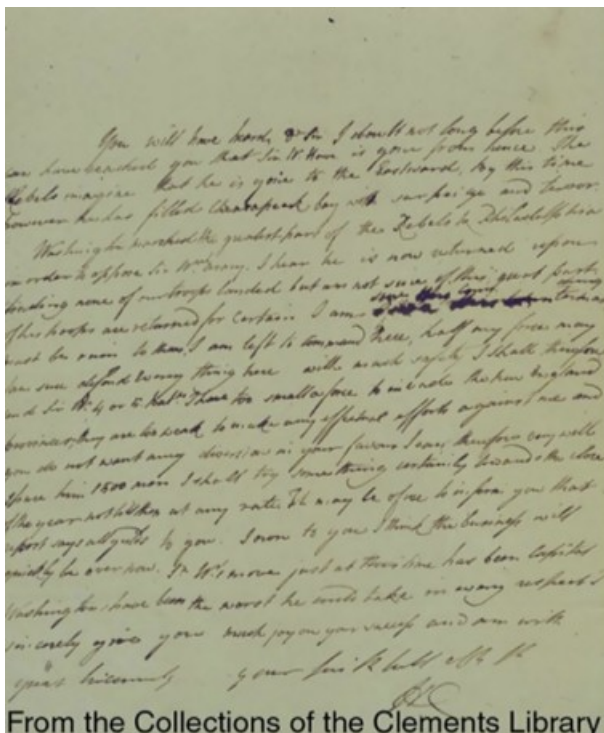 You will have heard, Dr Sir I doubt not long before this
can have reached you that Sir W. Howe is gone from hence. The
Rebels imagine that he is gone to the Eastward, by this time
however he has filled Chesapeak bay with surprize and terror.
Washington marched the greatest part of the Rebels to Philadelphia
in order to oppose Sir Wms army. I hear he is now returned upon
finding none of our troops landed but am not sure of this, great part
of his troops are returned for certain I am sure this
must be ruin to them, I am left to command here, half my force may
I am sure defend every thing here with much safety I shall therefore
send Sir W 4 or 5 Batns I have too small a force to invade the New England
provinces, they are too weak to make any effectual efforts against me and
you do not want any diversion in your favour I can therefore very well
spare him 1500 men I shall try something certainly towards the close
of the year not till then at any rate. It may be of use to inform you that
report says all yields to you. I own to you I think the business will
quickly be over now. Sr W's move just at this time has been Capital
Washingtons have been the worst he could take in every respect I
sincerely give you much joy on your success and am with
great Sincerity your
HC
From the Collections of the Clements Library